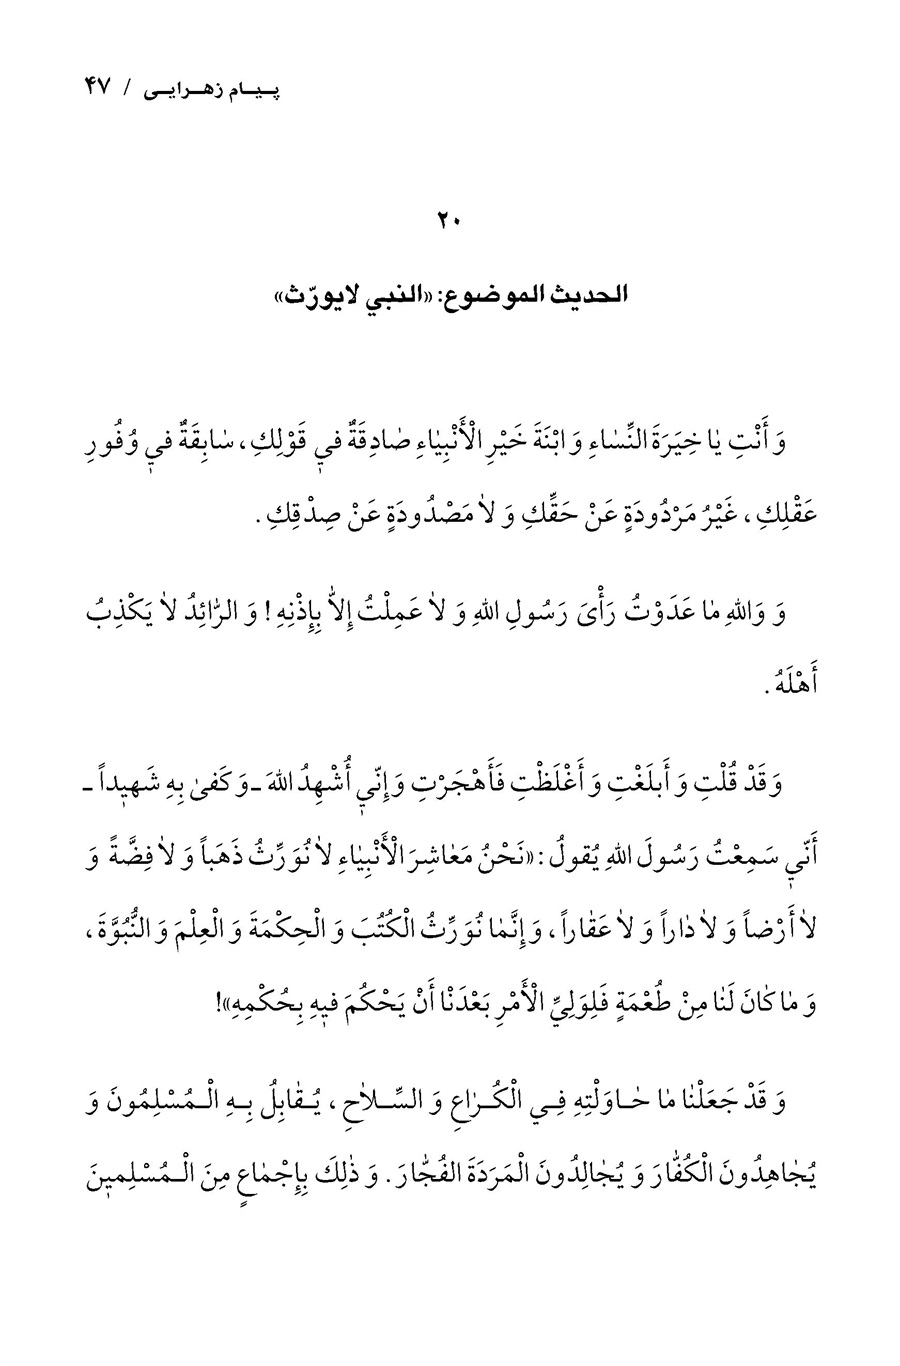 پیام زهرایی / ۴۷
۲۰
الحدیث الموضوع: «النبي لایورّث»
وَ أَنْتِ یٰا خِیَرَةَ النِّسٰاءِ وَ ابْنَةَ خَیْرِ الْأَنْبِیٰاءِ صٰادِقَةٌ في قَوْلِكِ، سٰابِقَةٌ في وُفُورِ
عَقْلِكِ، غَیْرُ مَرْدُودَةٍ عَنْ حَقِّكِ وَ لاٰ مَصْدُودَةٍ عَنْ صِدْقِكِ.
وَ وَاللهِ مٰا عَدَوْتُ رَأْیَ رَسُولِ اللهِ وَ لاٰ عَمِلْتُ إِلاّٰ بِإِذْنِهِ! وَ الرّٰائِدُ لاٰ یَكْذِبُ
أَهْلَهُ.
وَ قَدْ قُلْتِ وَ أَبلَغْتِ وَ أَغْلَظْتِ فَأَهْجَرْتِ وَ إِنّي أُشْهِدُ اللهَ ـ وَ كَفیٰ بِهِ شَهیداً ـ
أَنّي سَمِعْتُ رَسُولَ اللهِ یُقولُ: «نَحْنُ مَعٰاشِرَ الْأَنْبِیٰاءِ لاٰ نُوَرِّثُ ذَهَباً وَ لاٰ فِضَّةً وَ
لاٰ أَرْضاً وَ لاٰ دٰاراً وَ لاٰ عَقٰاراً، وَ إِنَّمٰا نُوَرِّثُ الْكُتُبَ وَ الْحِكْمَةَ وَ الْعِلْمَ وَ النُّبُوَّةَ،
وَ مٰا كٰانَ لَنٰا مِنْ طُعْمَةٍ فَلِوَلِيِّ الْأَمْرِ بَعْدَنْا أَنْ یَحْكُمَ فیهِ بِحُكْمِهِ»!
وَ قَدْ جَعَلْنٰا مٰا حٰاوَلْتِهِ فِي الْكُرٰاعِ وَ السِّلاٰحِ، یُقٰابِلُ بِهِ الْمُسْلِمُونَ وَ
یُجٰاهِدُونَ الْكُفّٰارَ وَ یُجٰالِدُونَ الْمَرَدَةَ الفُجّٰارَ. وَ ذٰلِكَ بِإِجْمٰاعٍ مِنَ الْمُسْلِمینَ